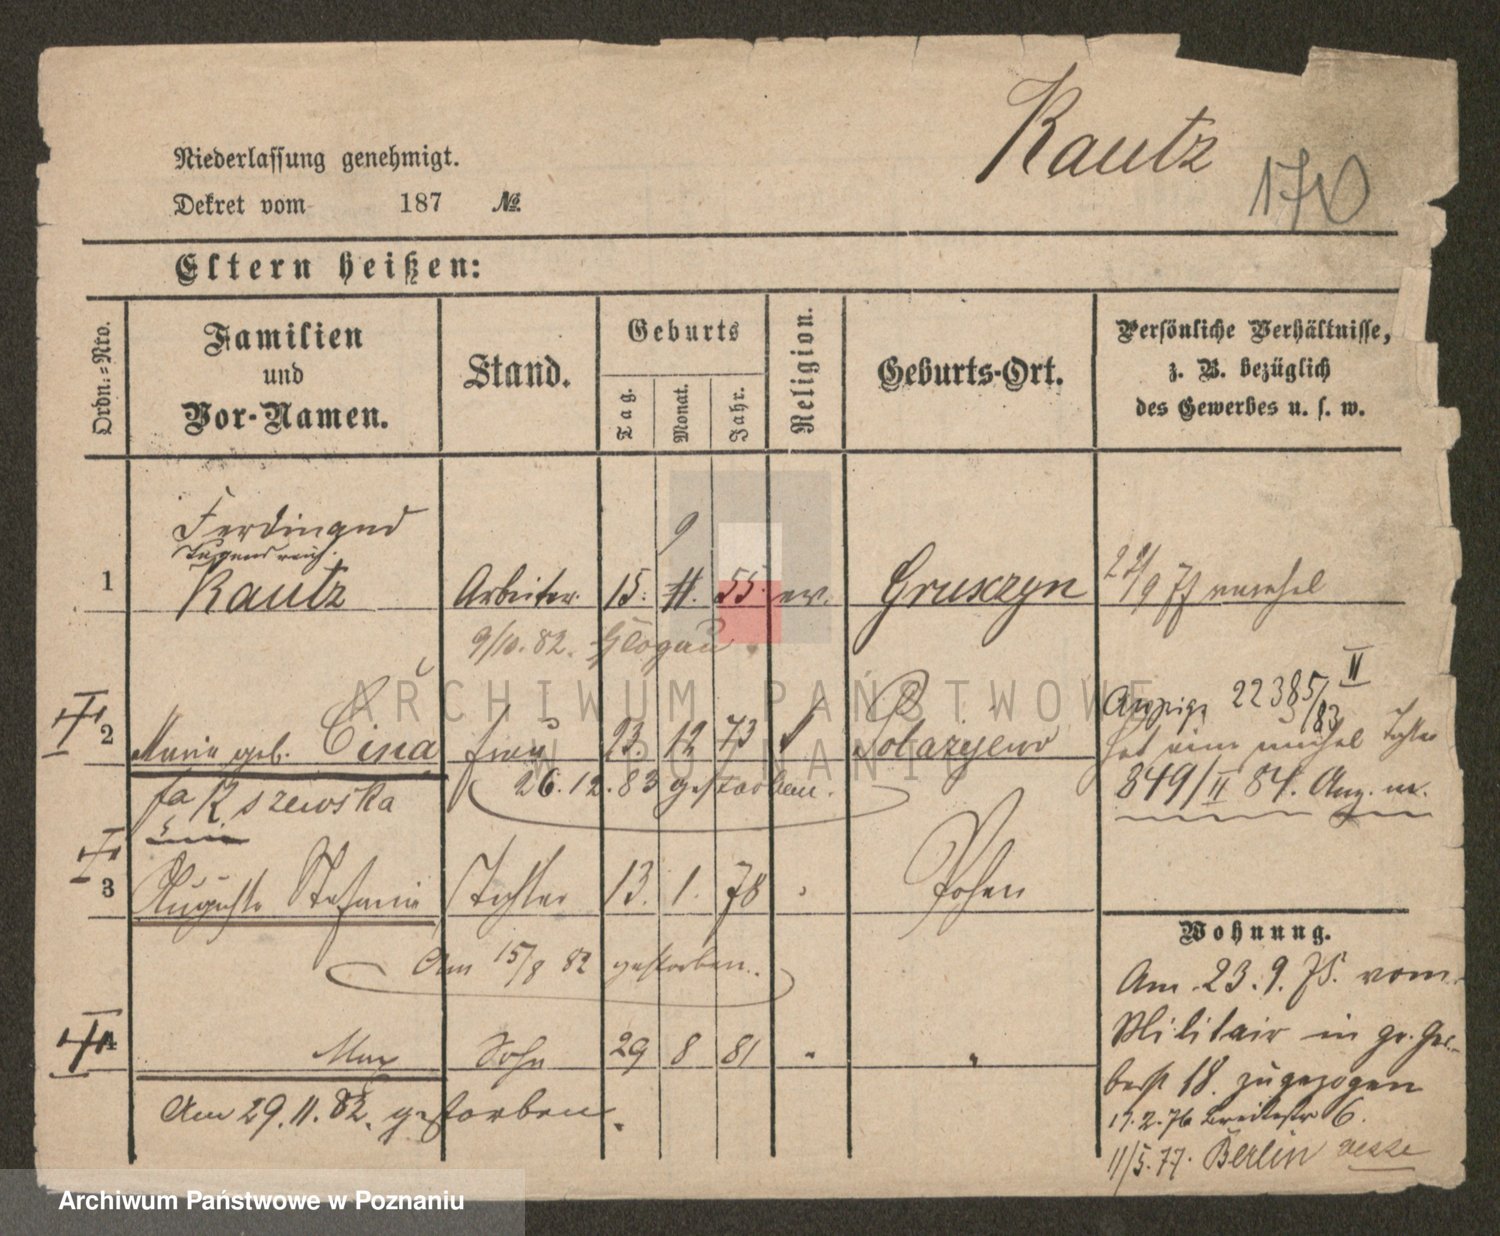 Kautz
170
Niederlassung genehmigt.
Dekret vom 187 №
Eltern heißen:
Ordn.-Nro.
Familien und Vor-Namen.
Stand.
Geburts
Tag. Monat. Jahr.
Religion.
Geburts-Ort.
Persönliche Verhältnisse, z. B. bezüglich des Gewerbes u. s. w.
Ferdinand
9
1 Kautz Arbeiter. 15. 11. 55. ev. Gruszzyn
9/10. 82. Glogau
II
Anzeige 22385/83
2 Marie geb. Cina Frau 23. 12 73
hat eine Tochter
26. 12. 83 gestorben.
849/II 84. Anz.
3 Auguste Stefanie Tochter 13. 1. 78 Posen
Am 15/8 82 gestorben.
4 Max Sohn 29 8 81 "
Am 29. 11. 82. gestorben.
Wohnung.
Am 23. 9. 75. vom
Militair in gr. Ger-
berst 18. zugezogen
17. 2. 76 Breitestr 6.
11/5. 77. Berlin
ARCHIWUM PAŃSTWOWE
W POZNANIU
Archiwum Państwowe w Poznaniu